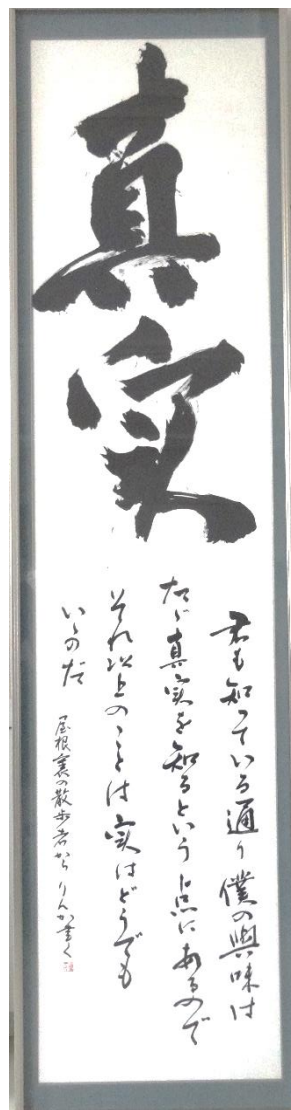 真実
君も知っている通り僕の興味は
たゞ真実を知るという点にあるので
それ以上のことは実はどうでも
いゝのだ
屋根裏の散歩者から りんか書く